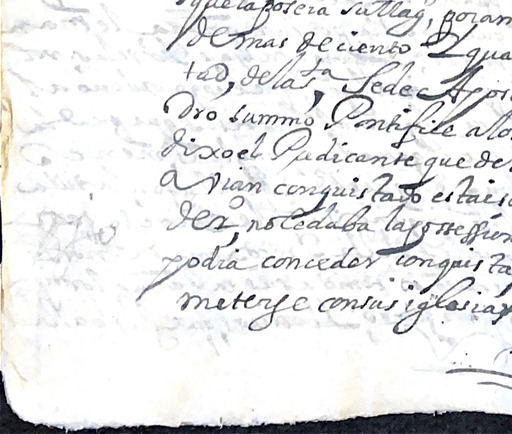 que la posera su Mag, por am
de mas de ciento y qua
tad, de la S.ta Sede Apos
Dro summo Pontifice a lo
dixo el Pudicante que de
avian conquistado esta is
der, no le daba la possession
podia conceder conquista
meterse con sus iglesias